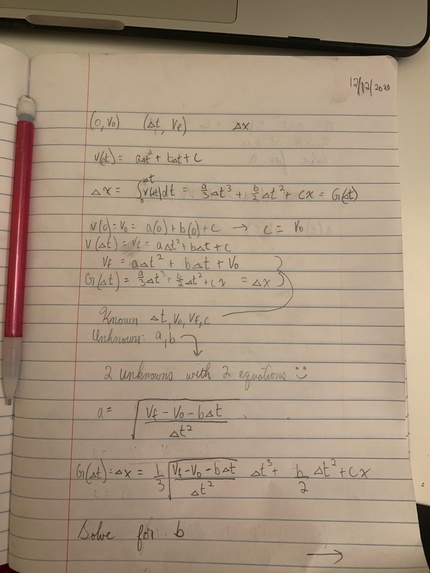 12/12/2020
(0, V₀) (Δt, V_f) Δx
V(t) = at² + bt + c
Δx = ∫₀^Δt v(t)dt = a/3 Δt³ + b/2 Δt² + cx = G(Δt)
V(0) = V₀ = a(0) + b(0) + c → c = V₀
V(Δt) = V_f = aΔt² + bΔt + c
V_f = aΔt² + bΔt + V₀
G(Δt) = a/3 Δt³ + b/2 Δt² + cx = Δx
Known: Δt, V₀, V_f, c
Unknown: a, b
2 unknowns with 2 equations :)
a = √((V_f - V₀ - bΔt)/Δt²)
G(Δt) = Δx = 1/3 √((V_f - V₀ - bΔt)/Δt²) Δt³ + b/2 Δt² + cx
Solve for b
→